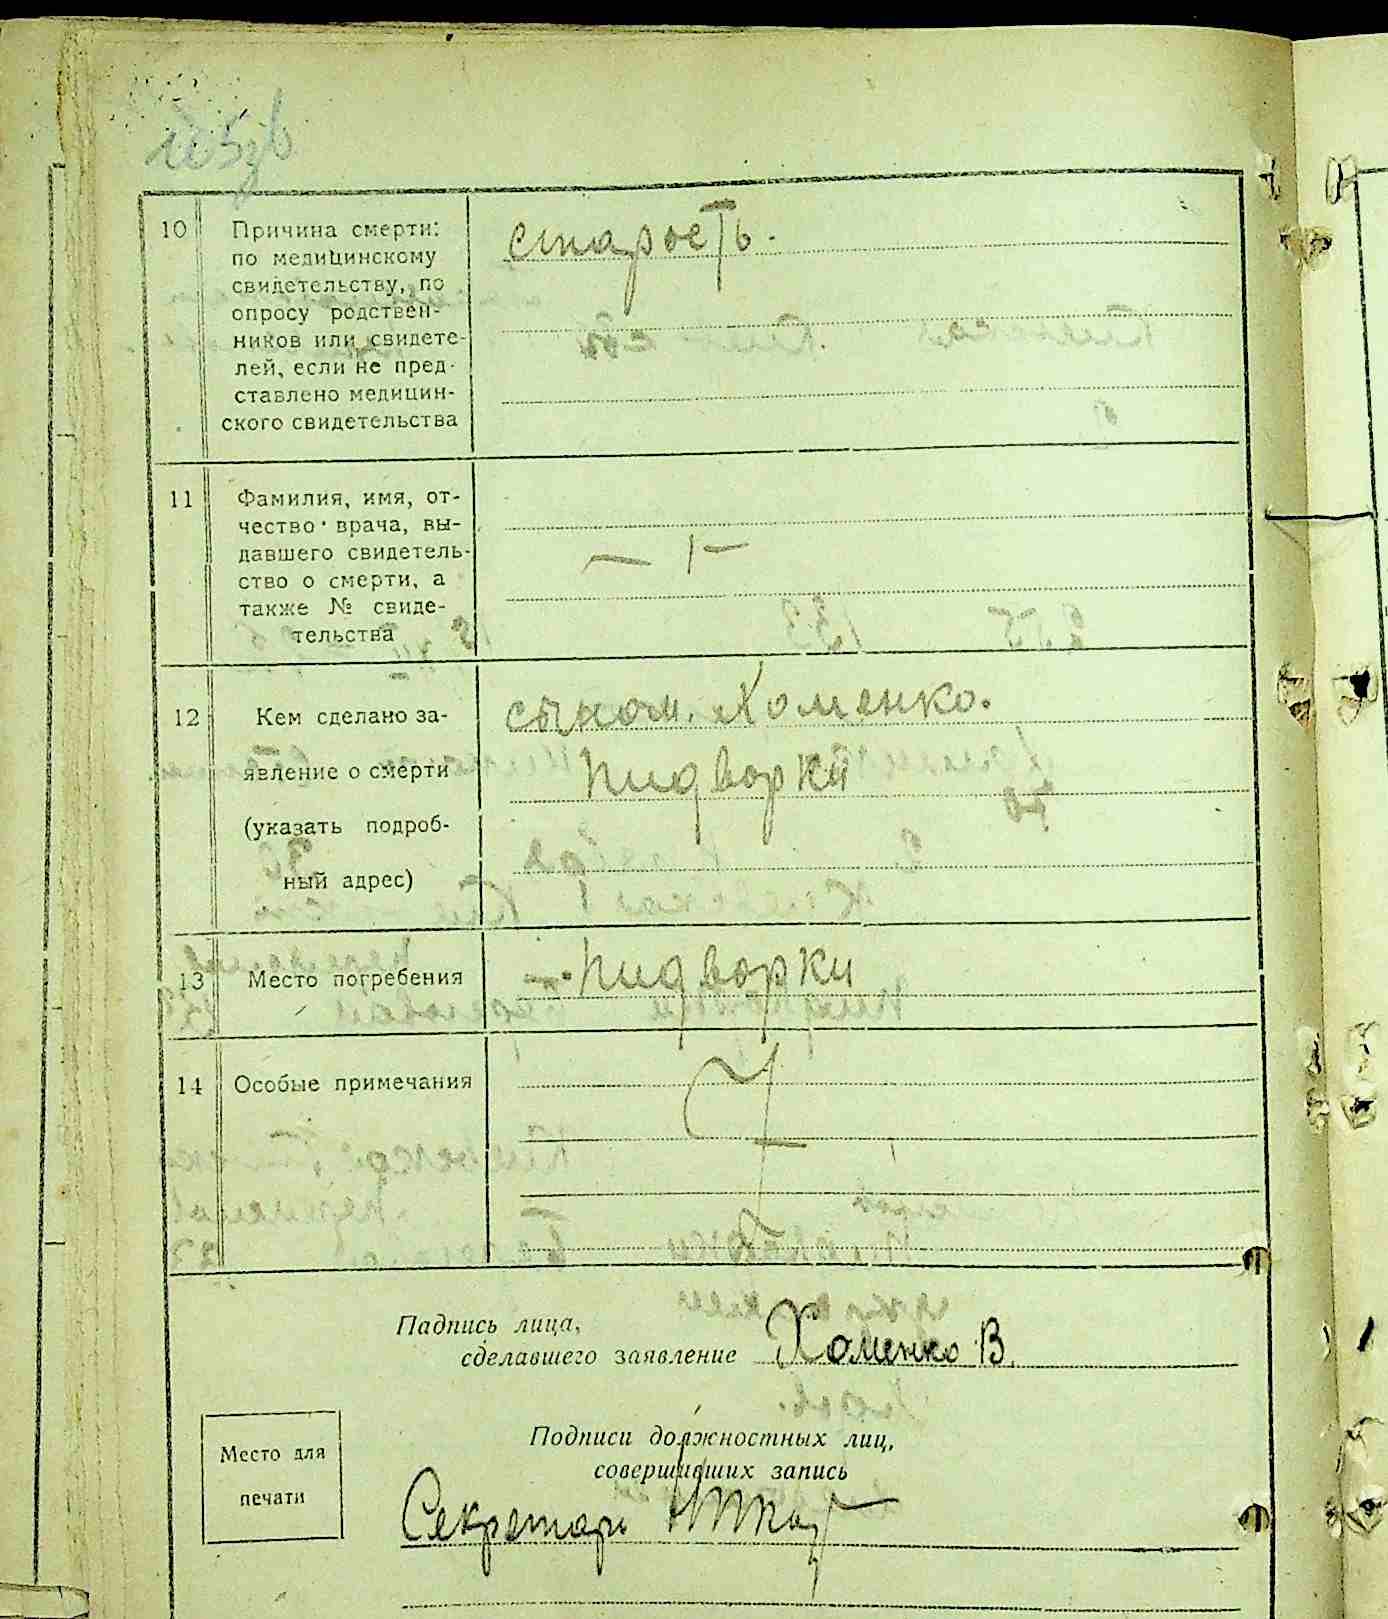 10 Причина смерти:
по медицинскому
свидетельству, по
опросу родствен-
ников или свидете-
лей, если не пред-
ставлено медицин-
ского свидетельства
старость.
11 Фамилия, имя, от-
чество врача, вы-
давшего свидетель-
ство о смерти, а
также № свиде-
тельства
12 Кем сделано за-
явление о смерти
(указать подроб-
ный адрес)
сыном. Хоменко.
Пидворки
13 Место погребения
Пидворки
14 Особые примечания
Падпись лица,
сделавшего заявление Хоменко В.
Подписи должностных лиц,
совершивших запись
Место для
печати
Секретарь